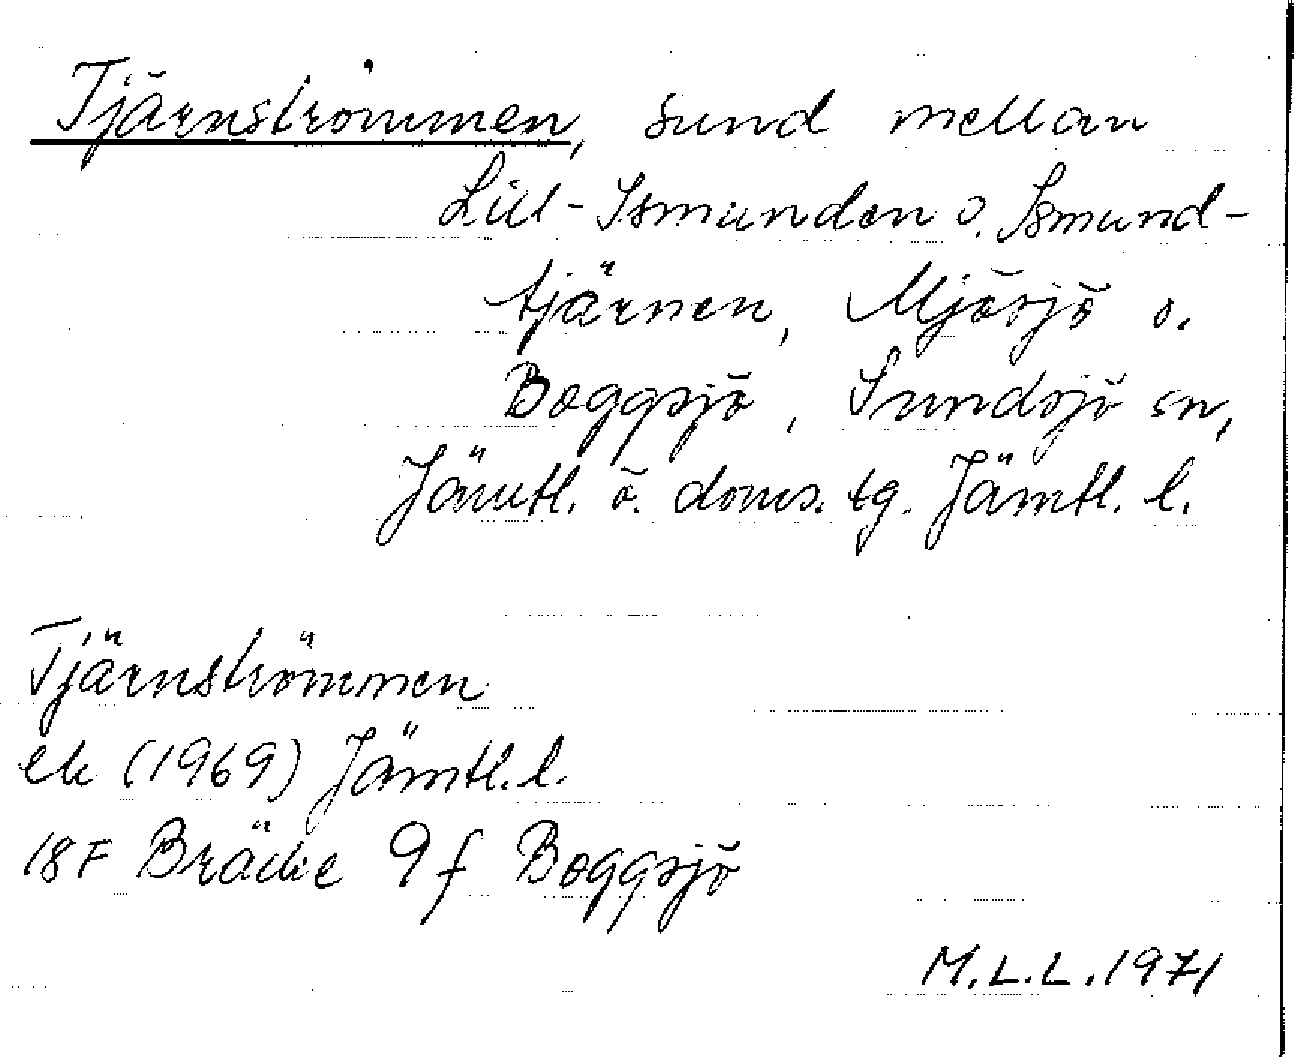 Tjärnströmmen, sund mellan
Lill-Ismunden o. Ismund-
tjärnen, Mjösjö o.
Boggsjö, Sundsjö sn,
Jämtl. ö. doms. tg. Jämtl. l.
Tjärnströmmen
ek (1969) Jämtl. l.
18F Bräcke 9f Boggsjö
M.L.L. 1971